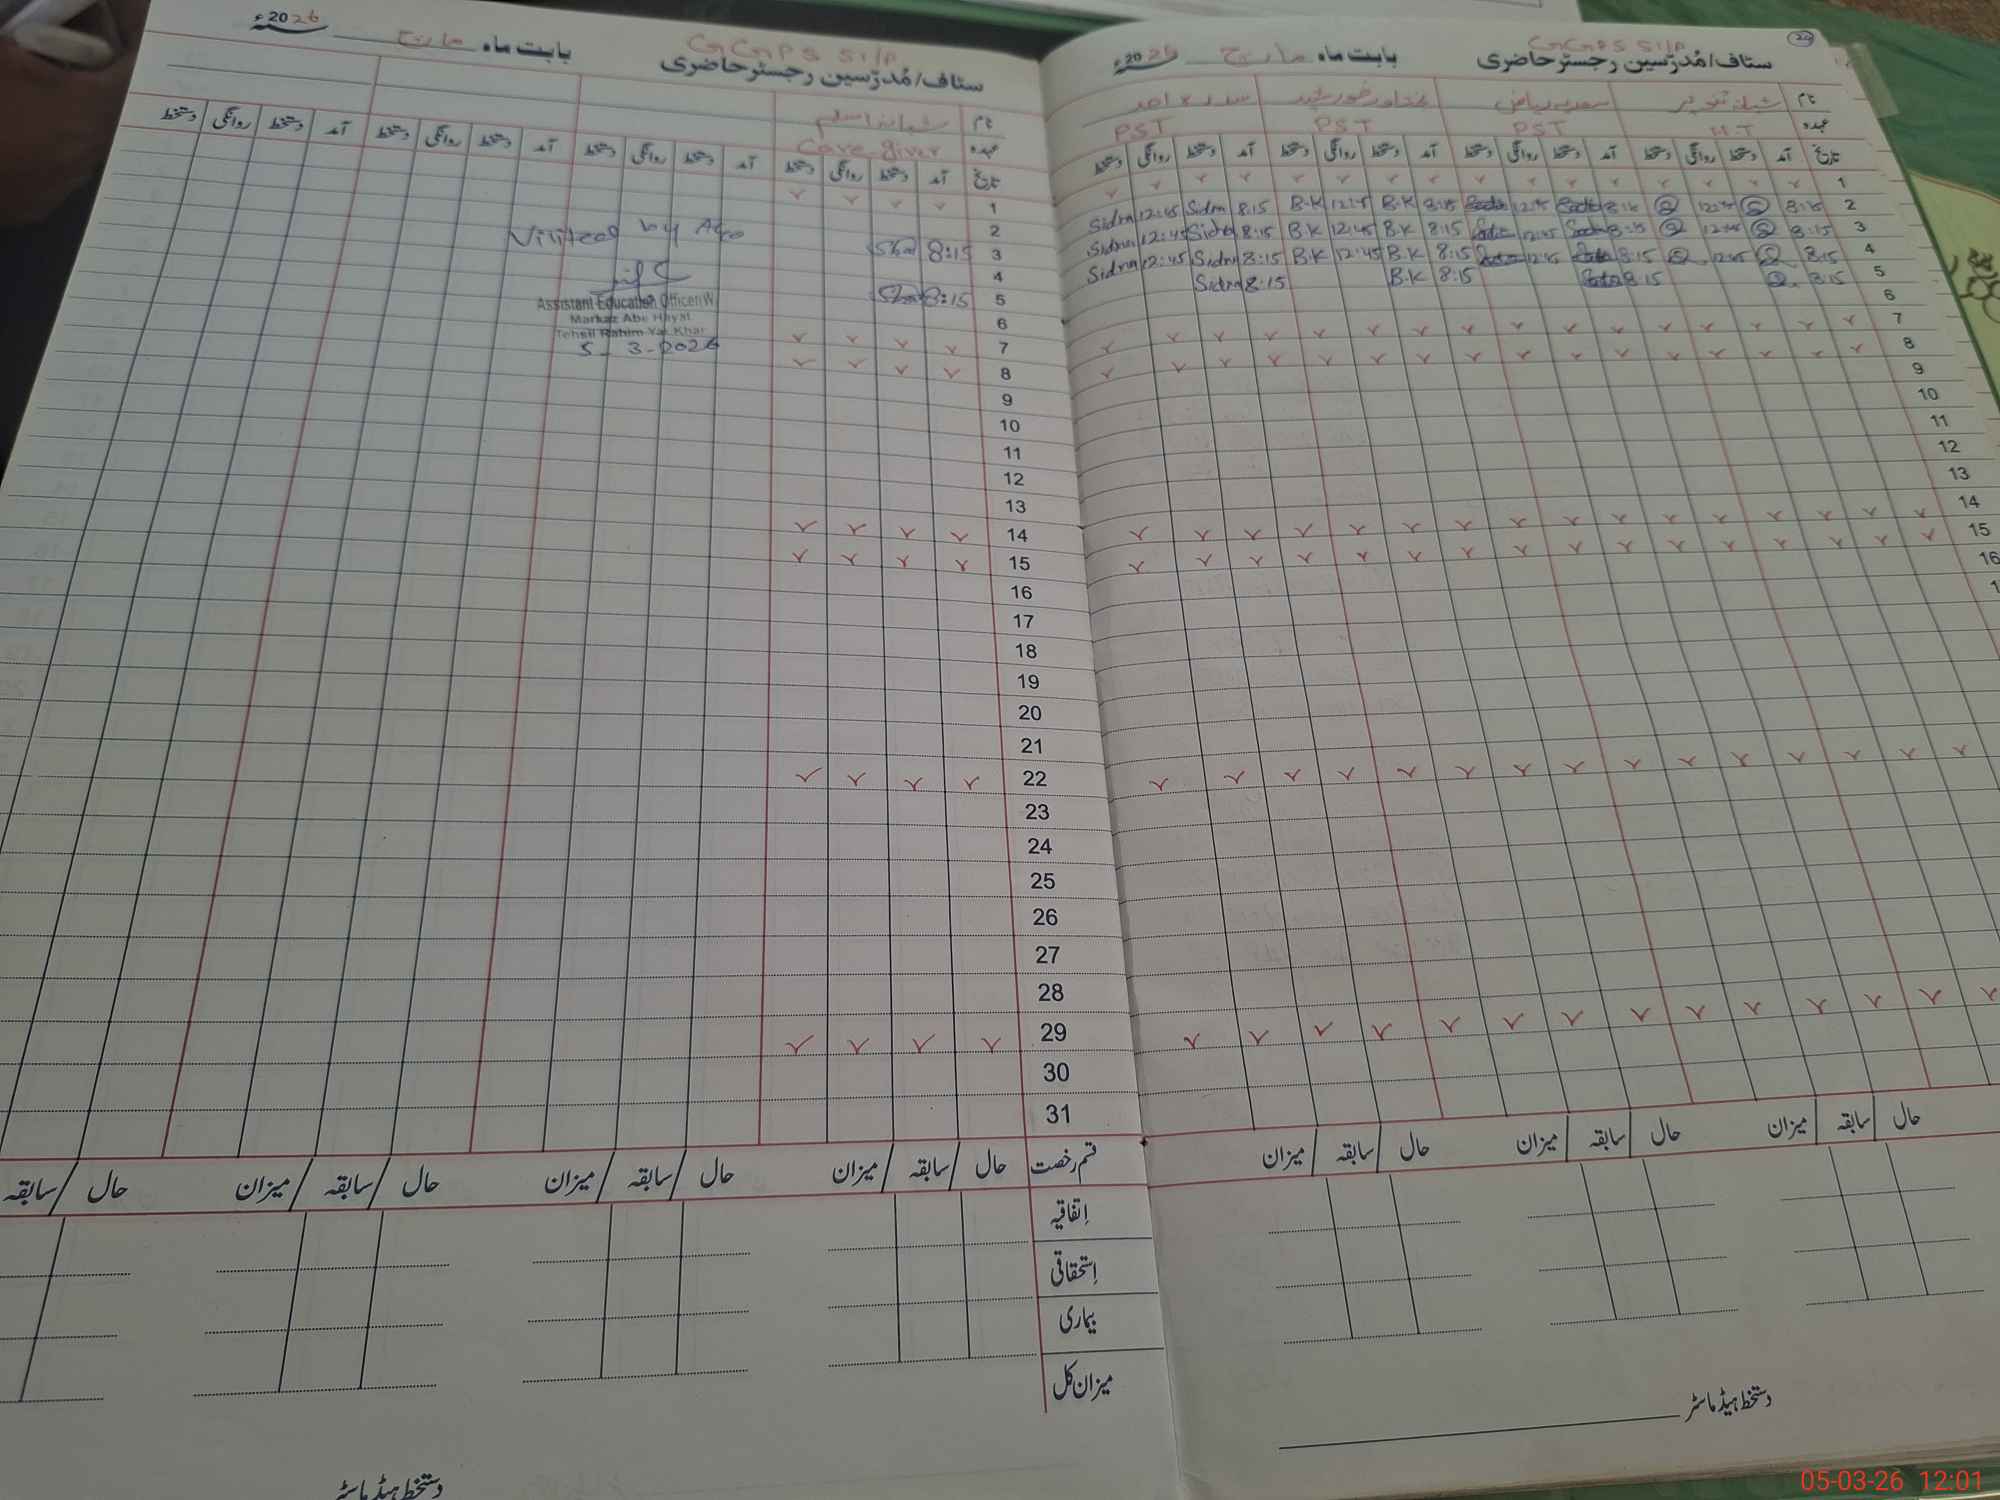 GGPS SI/P
ستاف/مُدرّسین رجسٹر حاضری
بابت ماہ مارچ
2026ء
نام شبانہ اسلم
عہدہ Care giver
تاریخ آمد دستخط روانگی دستخط آمد دستخط روانگی دستخط آمد دستخط روانگی دستخط آمد دستخط روانگی دستخط
1
2
3 8:15
4
5 8:15
6
7
8
9
10
11
12
13
14
15
16
17
18
19
20
21
22
23
24
25
26
27
28
29
30
31
Visited by AEO
Assistant Education Officer(W)
Markaz Abe Hayat
Tehsil Rahim Yar Khan
5-3-2026
قسم رخصت حال سابقہ میزان حال سابقہ میزان حال سابقہ میزان حال سابقہ
اِتفاقیہ
اِستحقاقی
بیماری
میزان کل
دستخط ہیڈ ماسٹر
20
GGPS SI/P
ستاف/مُدرّسین رجسٹر حاضری
بابت ماہ مارچ
2026ء
نام سعدیہ ریاض سدرہ احمد
عہدہ H.T PST PST PST
تاریخ آمد دستخط روانگی دستخط آمد دستخط روانگی دستخط آمد دستخط روانگی دستخط آمد دستخط روانگی دستخط
1
2 8:15 12:45 8:15 12:45 8:15 B.K 12:45 B.K 8:15 Sidra 12:45 Sidra
3 8:15 12:45 8:15 12:45 8:15 B.K 12:45 B.K 8:15 Sidra 12:45 Sidra
4 8:15 12:45 8:15 12:45 8:15 B.K 12:45 B.K 8:15 Sidra 12:45 Sidra
5 8:15 8:15 8:15 B.K 8:15 Sidra
6
7
8
9
10
11
12
13
14
15
16
حال سابقہ میزان حال سابقہ میزان حال سابقہ میزان
دستخط ہیڈ ماسٹر
05-03-26 12:01